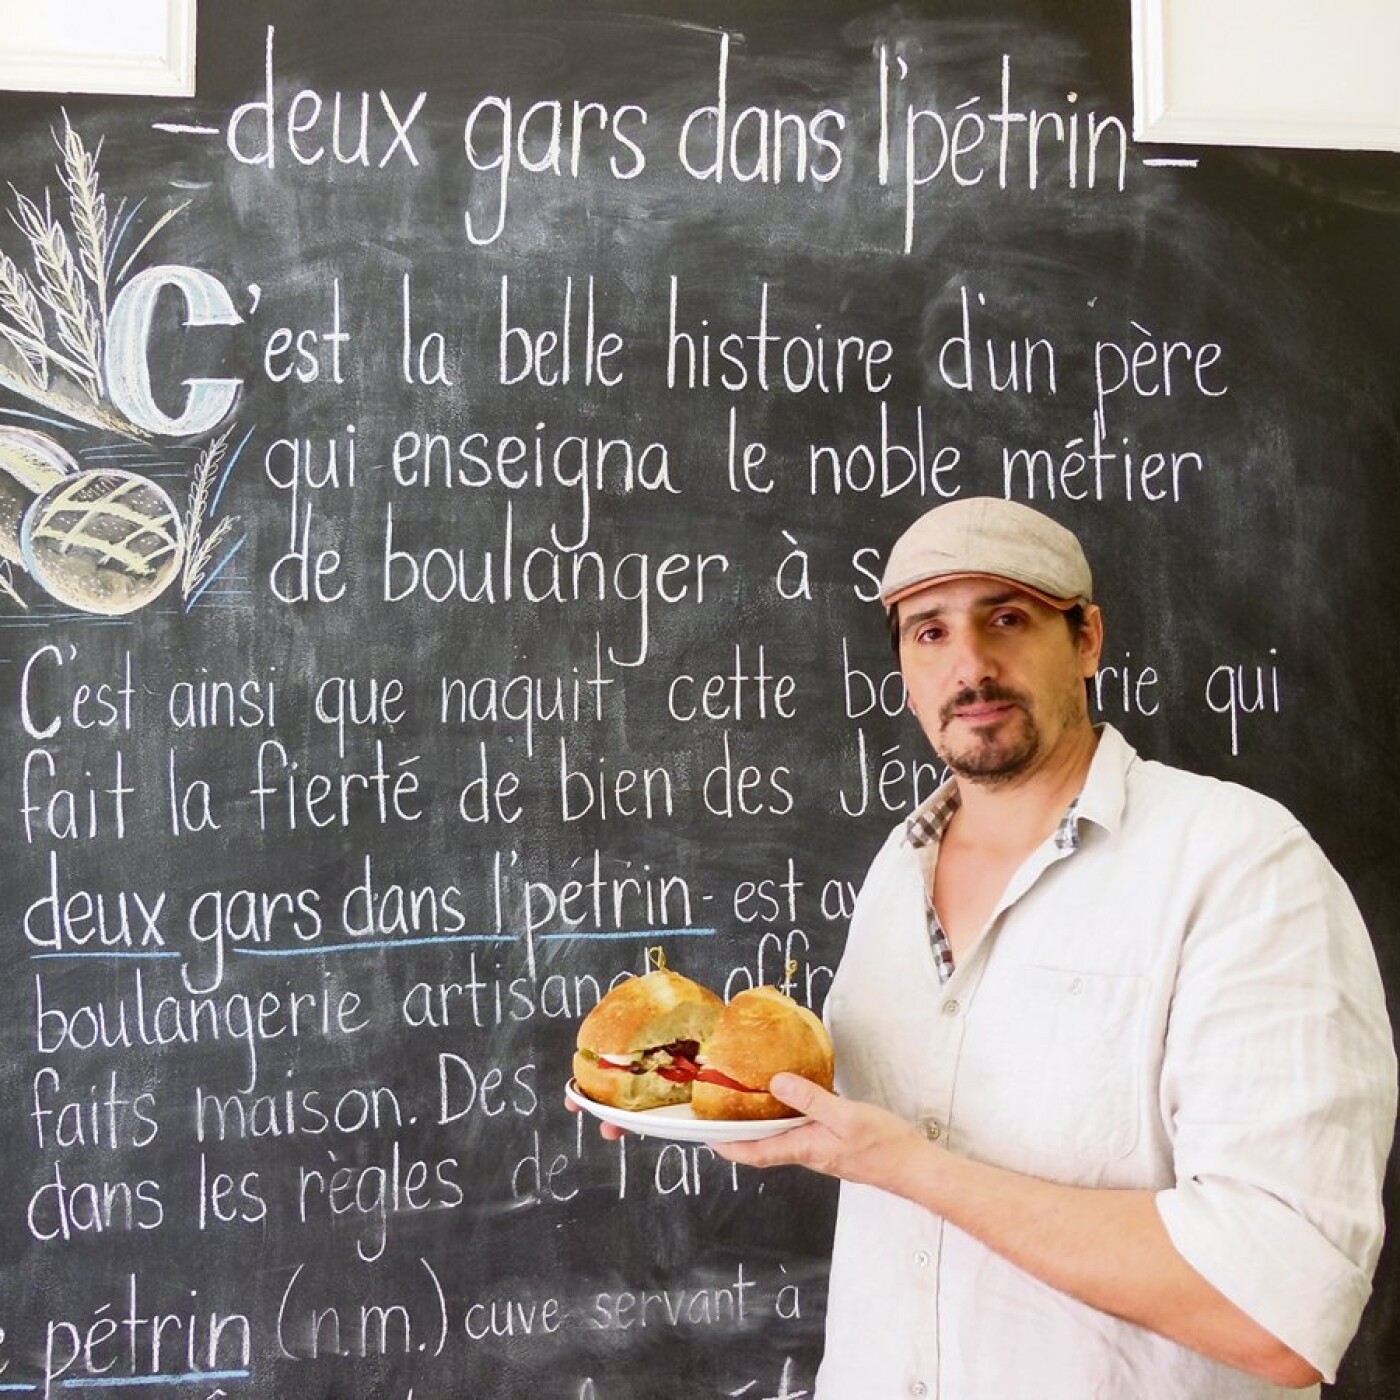 -deux gars dans l'pétrin-
C'est la belle histoire d'un père
qui enseigna le noble métier
de boulanger à
C'est ainsi que naquit cette qui
fait la fierté de bien des
deux gars dans l'pétrin- est
boulangerie
faits maison. Des
dans les règles de l'art.
pétrin (n.m.) cuve servant à